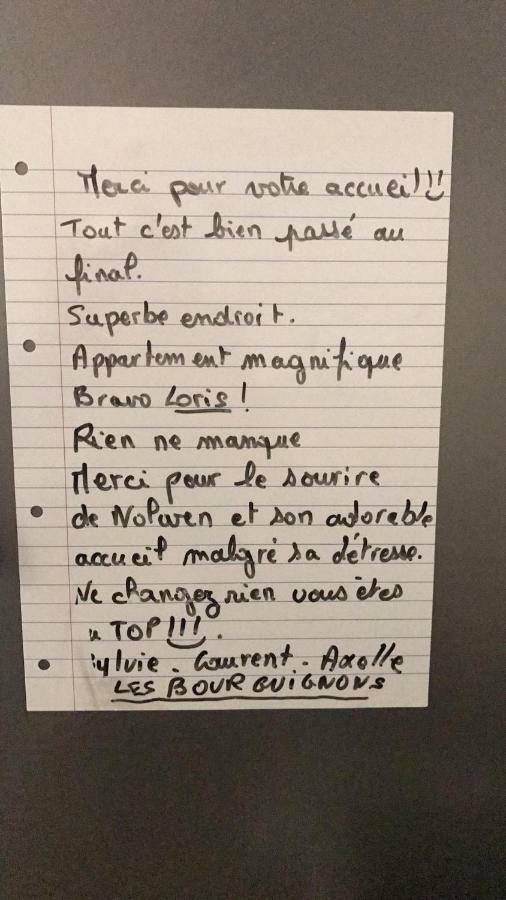 Merci pour votre accueil!!!
Tout c'est bien passé au
final.
Superbe endroit.
Appartement magnifique
Bravo Loris !
Rien ne manque
Merci pour le sourire
de Nolwen et son adorable
accueil malgré sa détresse.
Ne changez rien vous êtes
u TOP !!! .
ylvie . Laurent . Axelle
LES BOURGUIGNONS